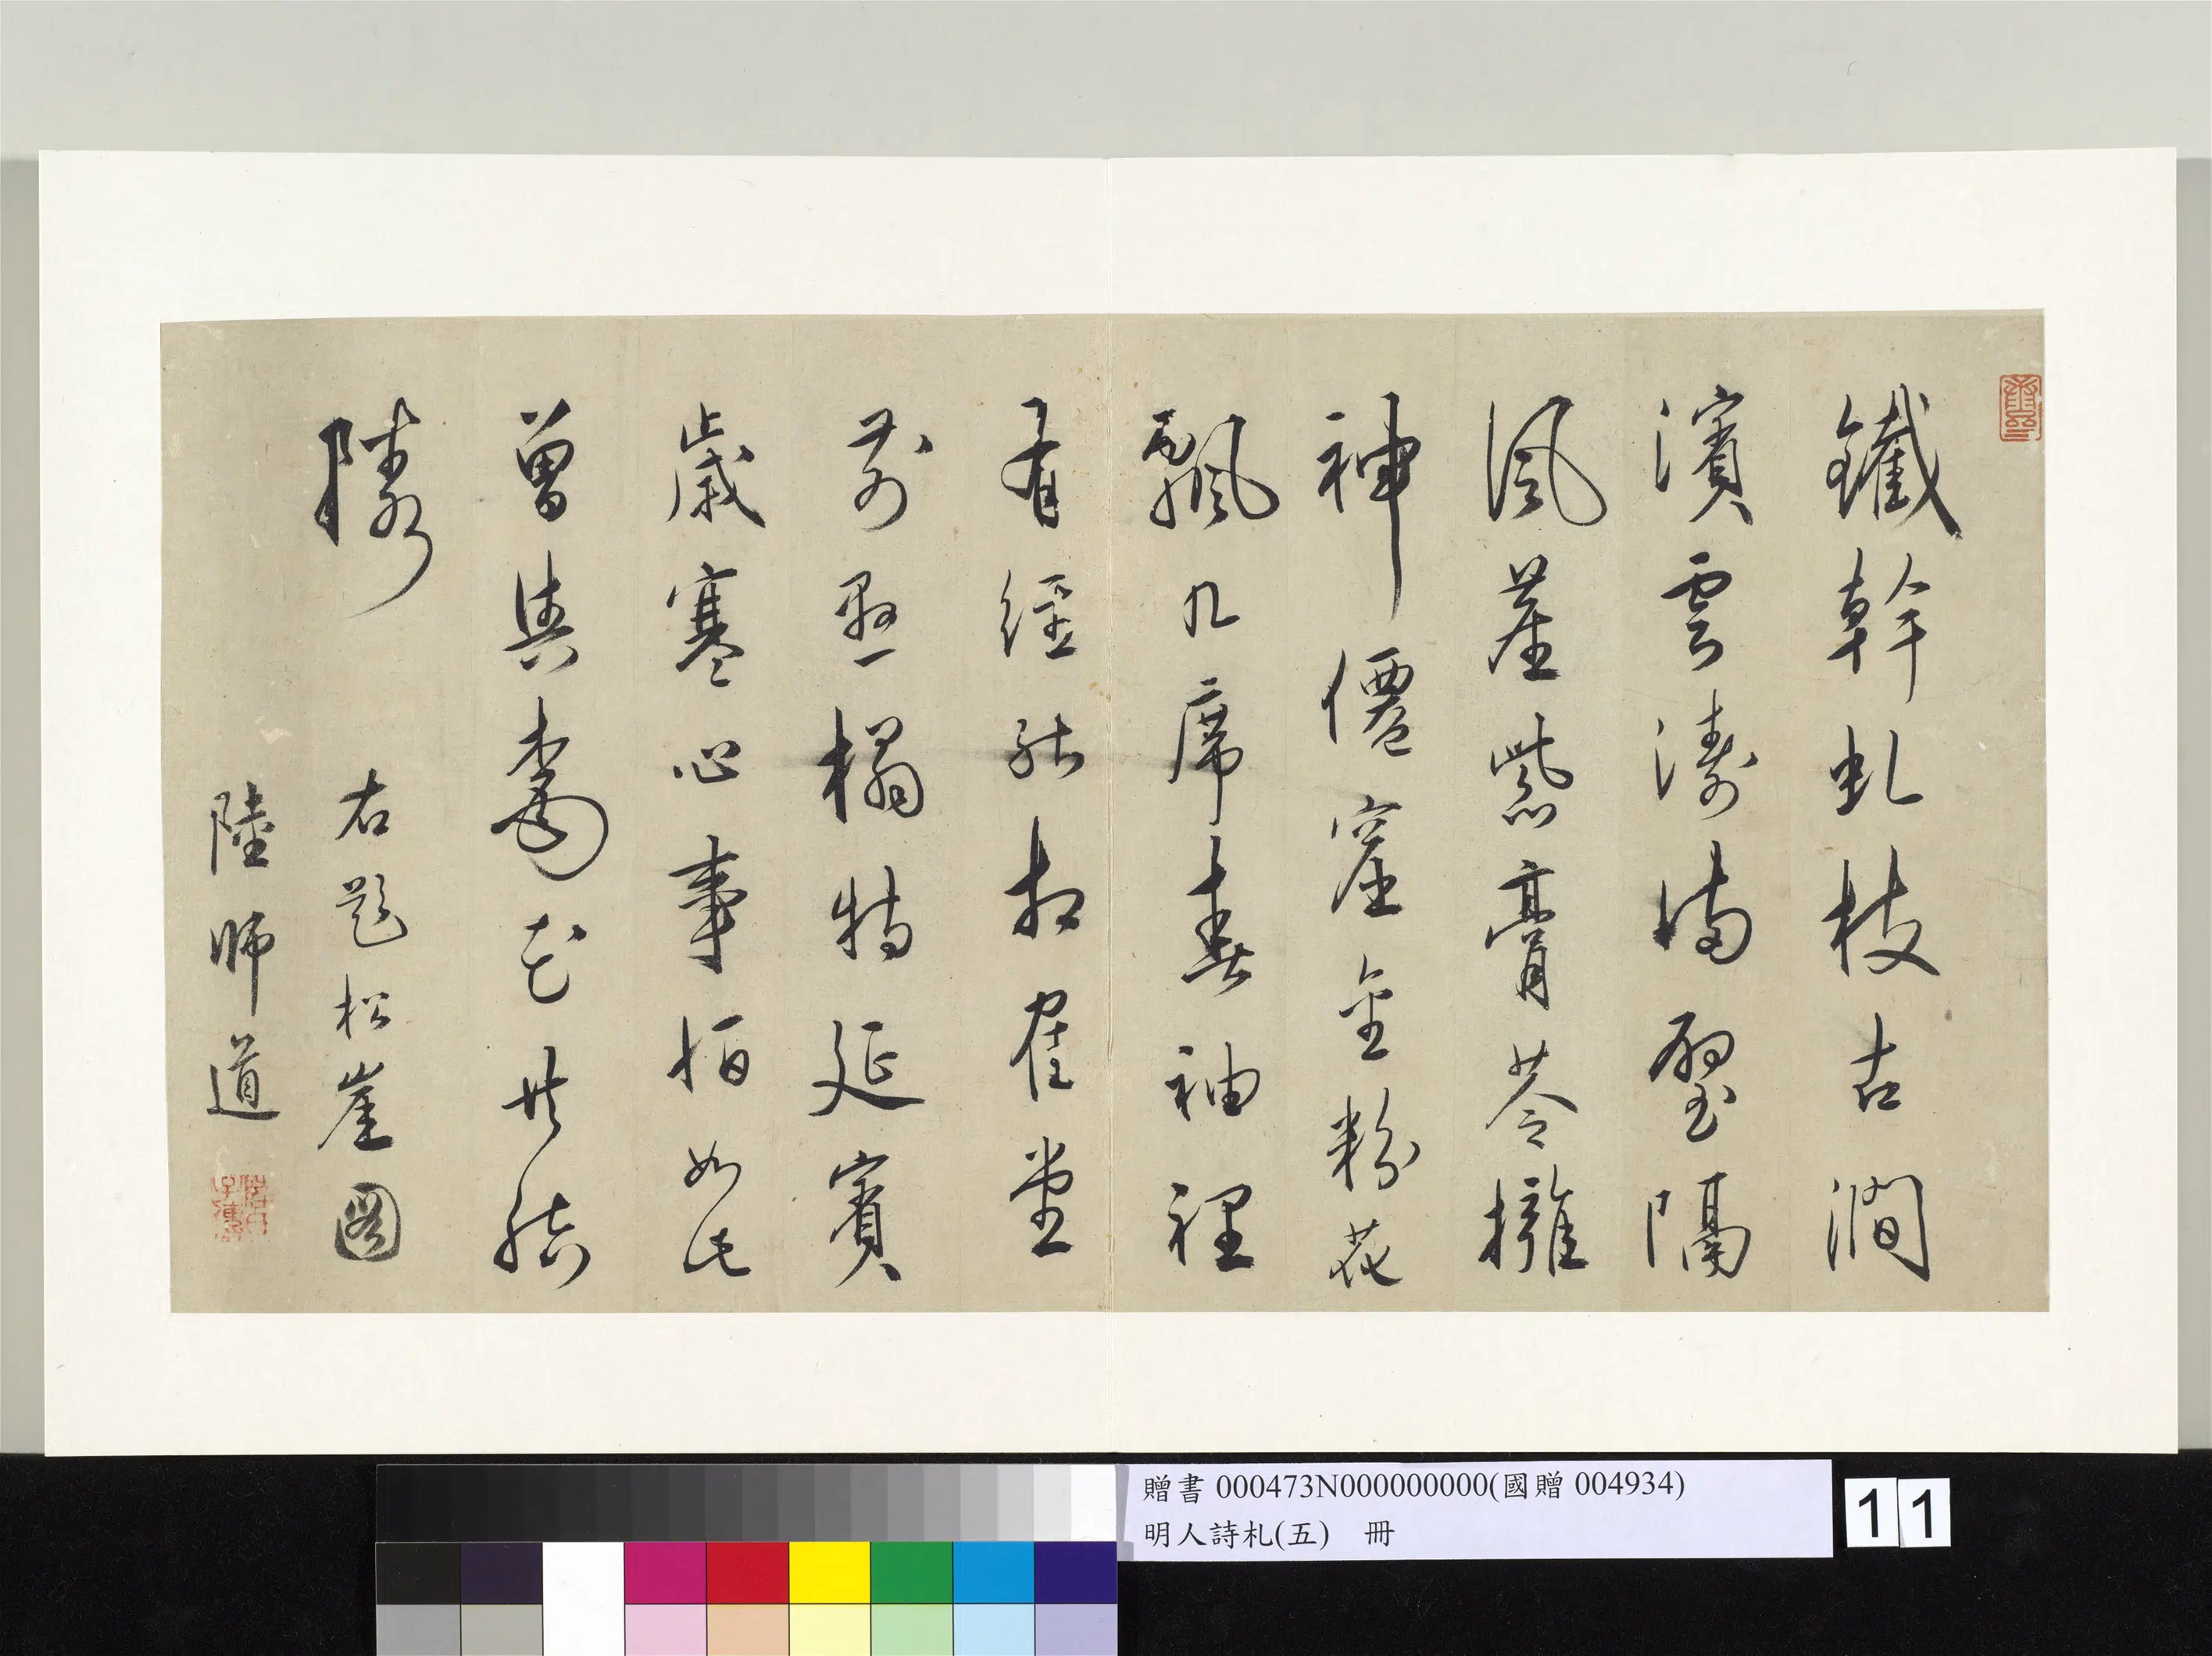 鐵幹虬枝古澗
濱雲濤满壁隔
風塵紫膏苓擁
神僊窟金粉花
飄几席春袖裡
有經能相隺堂
前懸榻特延賓
歲寒心事如此
曾與共結
隣
右題松崖圖
陸師道
贈書 000473N000000000(國贈 004934)
明人詩札(五) 冊
11